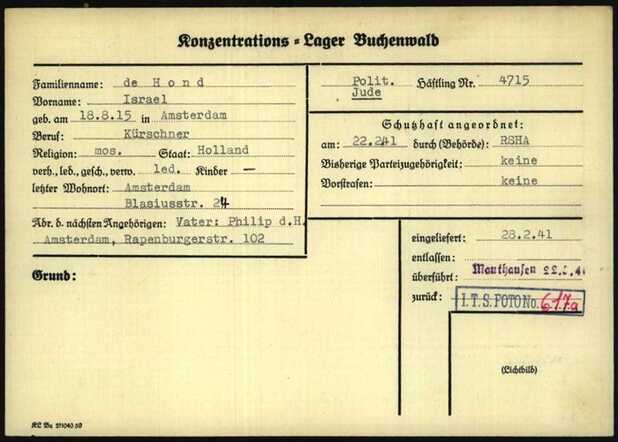 Konzentrations = Lager Buchenwald
Familienname: de Hond
Vorname: Israel
geb. am 18.8.15 in Amsterdam
Beruf: Kürschner
Religion: mos. Staat: Holland
verh., led., gesch., verw. led. Kinder —
letzter Wohnort: Amsterdam
Blasiusstr. 24
Adr. d. nächsten Angehörigen: Vater: Philip d.H.
Amsterdam, Rapenburgerstr. 102
Grund:
Polit. Häftling Nr. 4715
Jude
Schutzhaft angeordnet:
am: 22.241 durch (Behörde): RSHA
Bisherige Parteizugehörigkeit: keine
Vorstrafen: keine
eingeliefert: 28.2.41
entlassen:
überführt: Mauthausen
zurück: I.T.S. FOTO No. 617a
(Lichtbild)